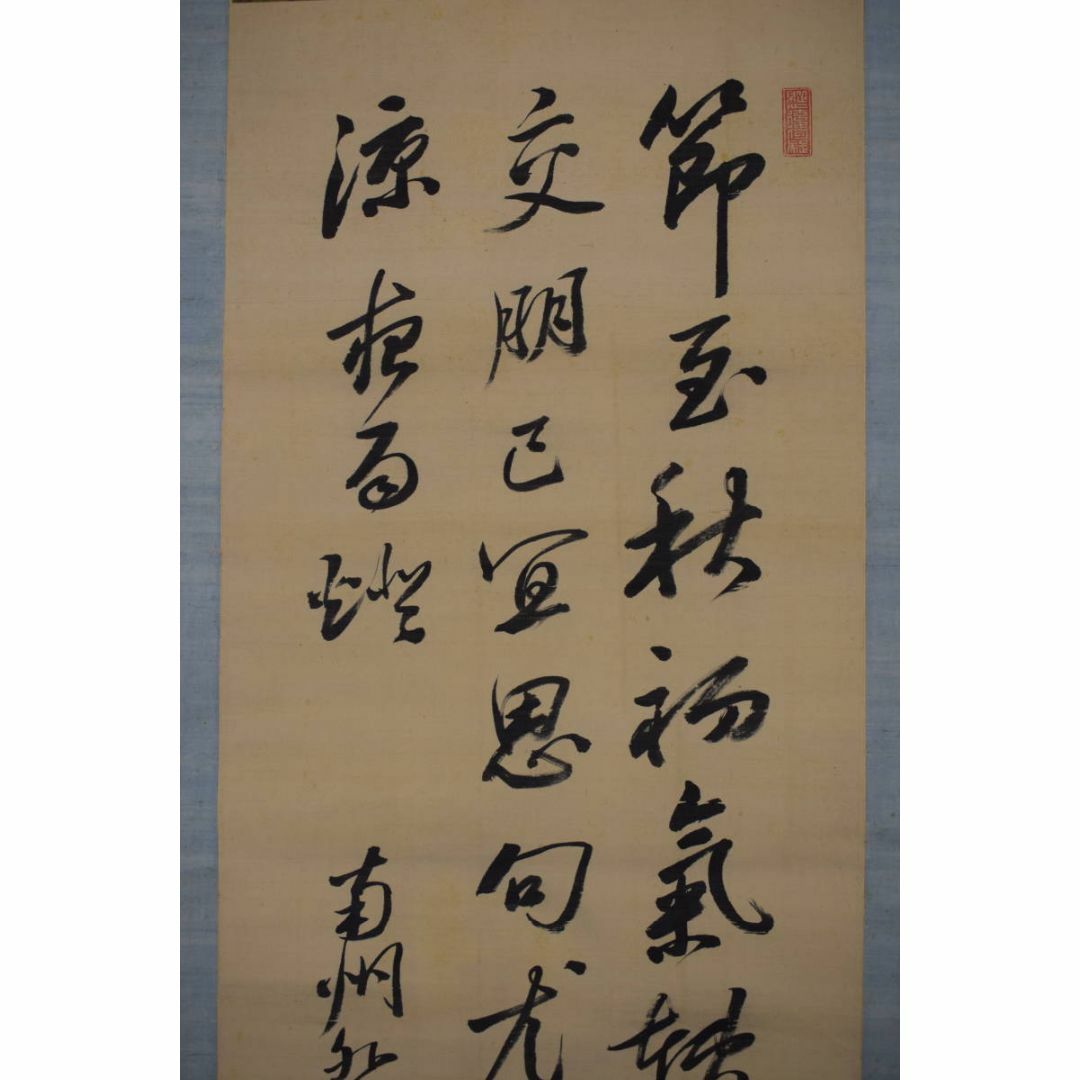 節至秋初氣
交朋已宜思句尤
涼夜雨燈
南州